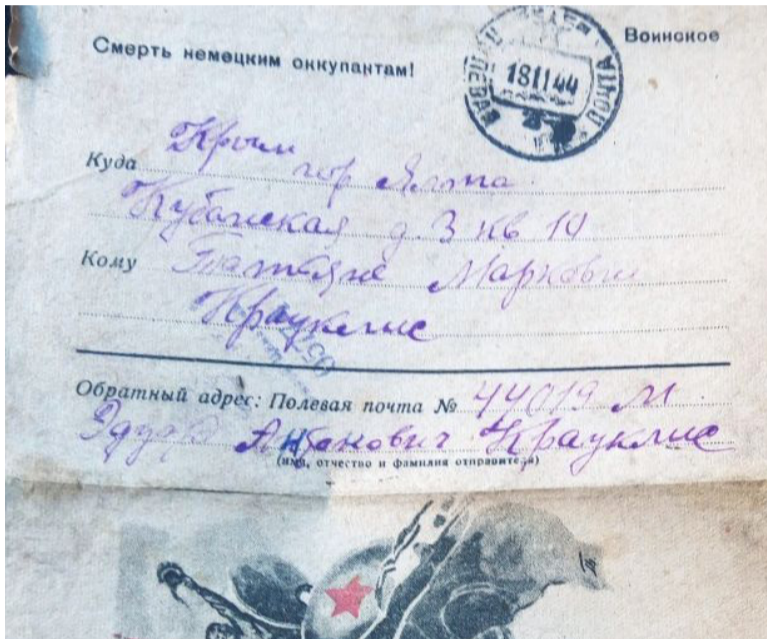 Смерть немецким оккупантам!
Воинское
18 11 44
Куда Крым
гор Ялта
Кубанская д. 3 кв 10
Кому Татьяне Марковне
Крауклис
Обратный адрес: Полевая почта № 44019 М
Эдуард Антонович Крауклис
(имя, отчество и фамилия отправителя)